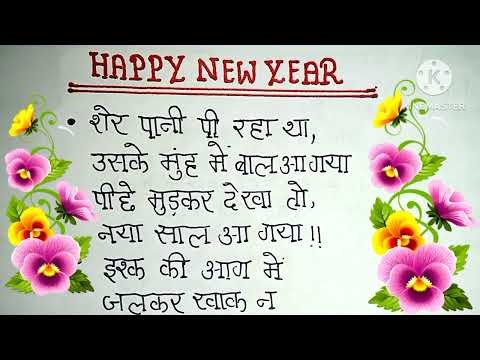 HAPPY NEW YEAR
KINEMASTER
• शेर पानी पी रहा था,
उसके मुंह में बाल आ गया
पीछे मुड़कर देखा तो,
नया साल आ गया!!
इश्क की आग में
जलकर खाक न